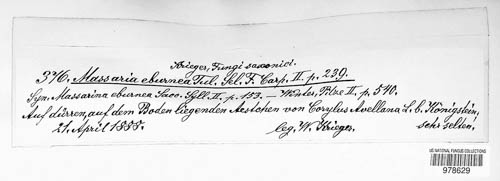 Krieger, Fungi saxonici.
346. Massaria eburnea Tul. Sel. F. Carp. II. p. 239.
Syn. Massarina eburnea Sacc. Syll. II. p. 153. — Winter, Pilze II, p. 540.
Auf dürren, auf dem Boden liegenden Aestchen von Corylus Avellana L. b. Königstein,
21. April 1885.
leg. W. Krieger.
sehr selten,
US NATIONAL FUNGUS COLLECTIONS
978629